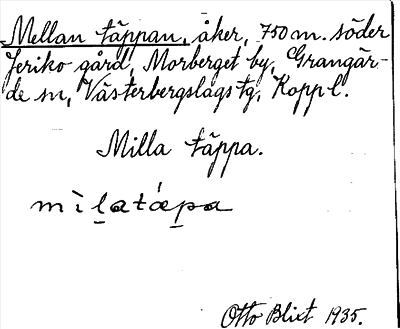 Mellan täppan, åker, 750 m. söder
Jeriko gård, Morberget by, Grangär-
de sn, Västerbergslags tg, Kopp l.
Milla täppa.
mìl̲atáp̲a
Otto Blixt 1935.